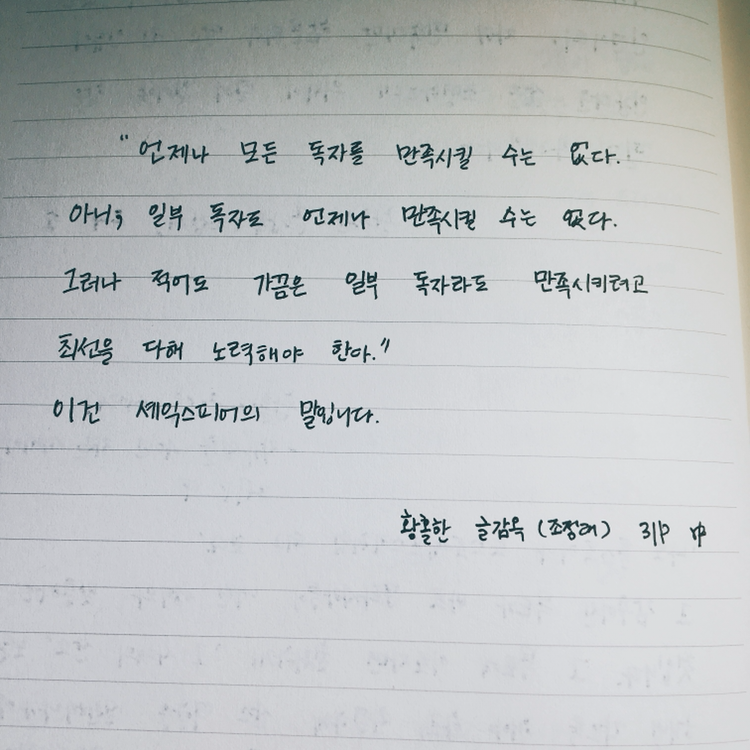 "언제나 모든 독자를 만족시킬 수는 없다.
아니, 일부 독자도 언제나 만족시킬 수는 없다.
그러나 적어도 가끔은 일부 독자라도 만족시키려고
최선을 다해 노력해야 한다."
이건 셰익스피어의 말입니다.
황홀한 글감옥 (조정래) 31P 中